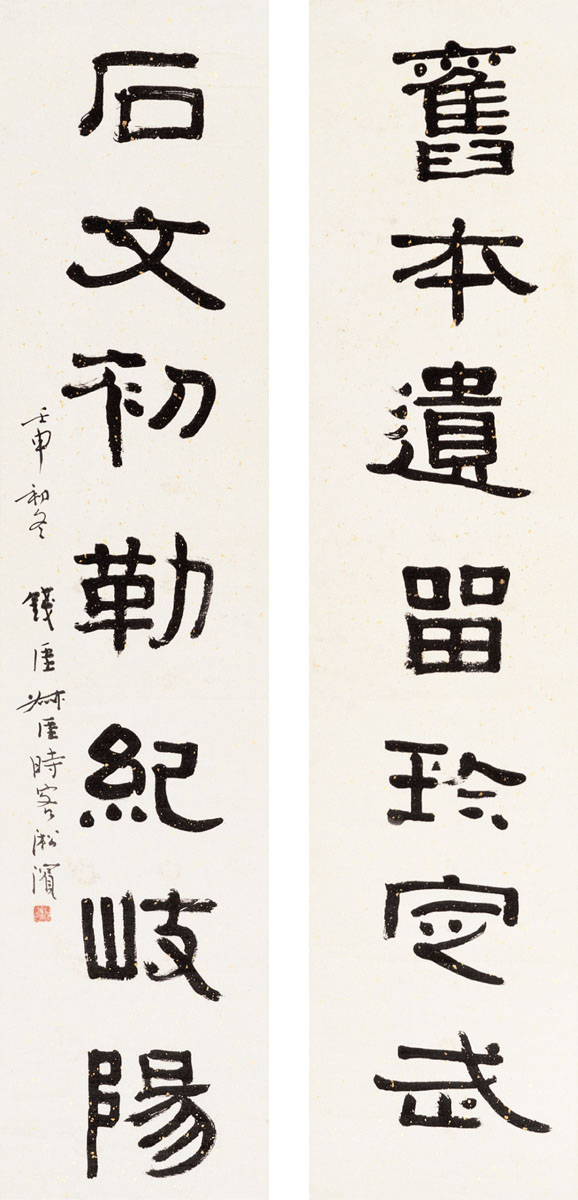 舊本遺留珍定武
石文初勒紀岐陽
壬申初冬 錢厓叔厓時客淞濱